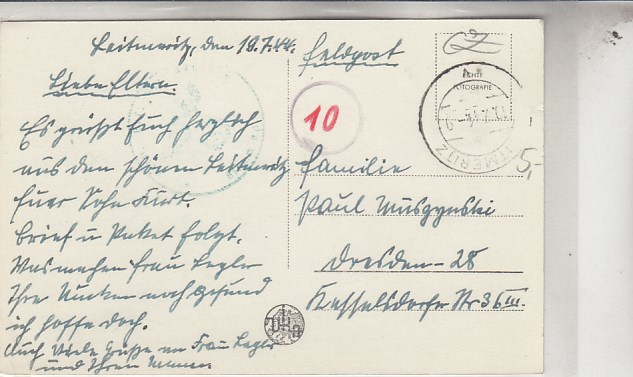 Leitmeritz, den 19.7.44.
Liebe Eltern.
Es grüßt Euch herzlich
aus dem schönen Leitmeritz
Euer Sohn Kurt.
Brief u Paket folgt.
Was machen Frau Legler
Ihre noch gesund
ich hoffe doch.
Auch Viele Grüße an Frau Legler
und Ihren
Feldpost
ECHTE
FOTOGRAFIE
LEITMERITZ
10
5,-
Familie
Paul Musgynski
Dresden-28
Kesselsdorfer Str 36 III.